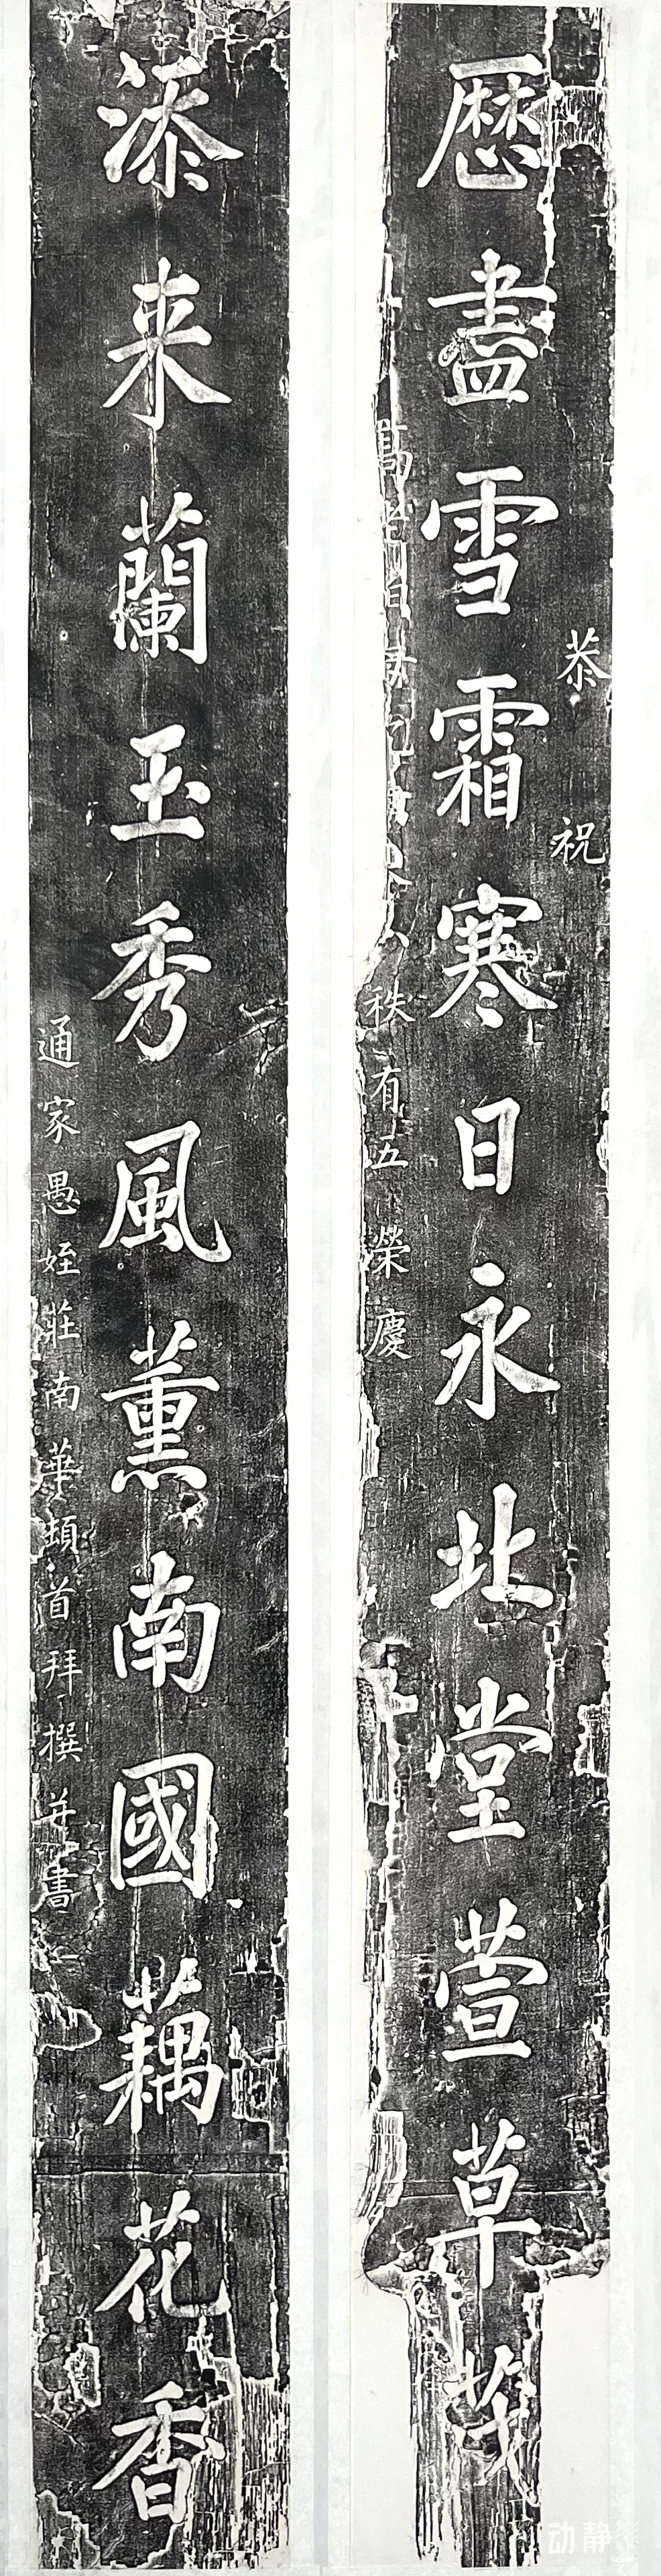 恭祝
歷盡雪霜寒日永北堂萱草茂
高老伯母 秩有五榮慶
添来蘭玉秀風薰南國藕花香
通家愚姪莊南華頓首拜撰并書
动静